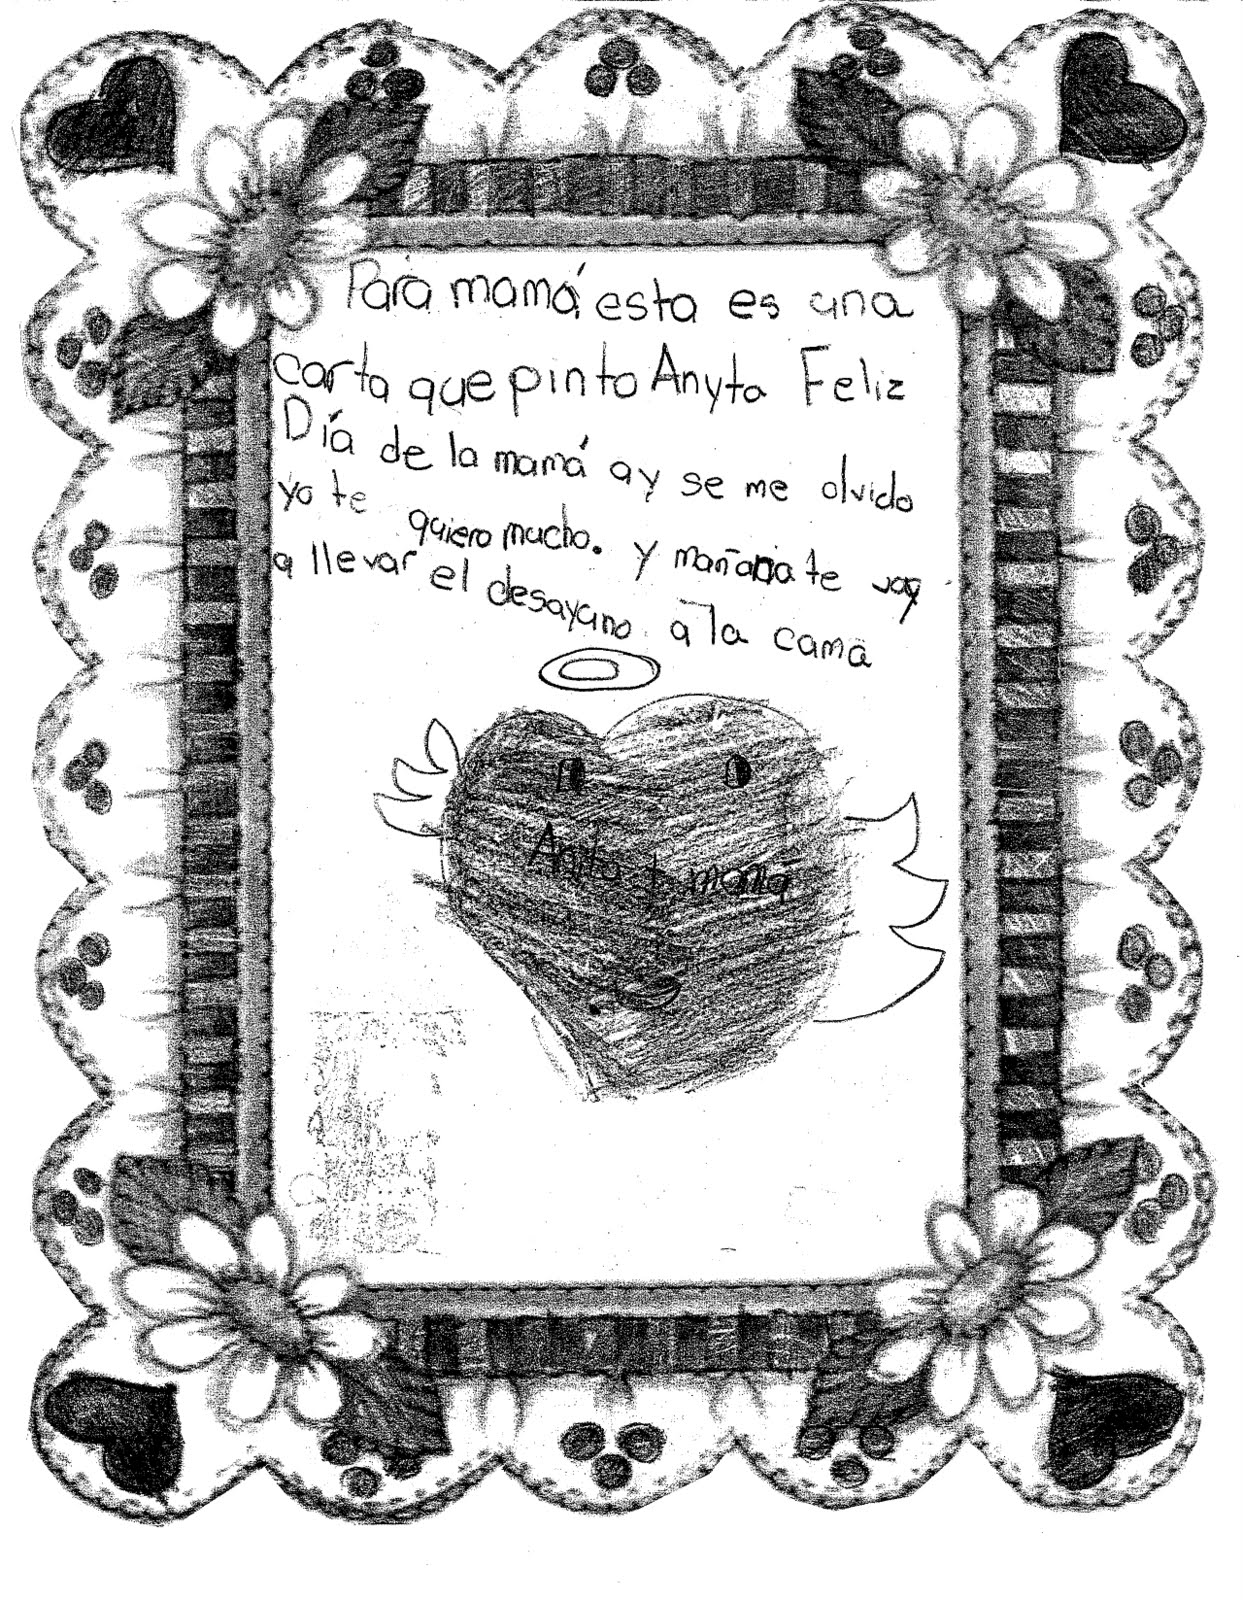 Para mamá esta es una
carta que pinto Anyta Feliz
Día de la mamá ay se me olvido
yo te quiero mucho. y mañana te voy
a llevar el desayuno a la cama
Anita y mamá